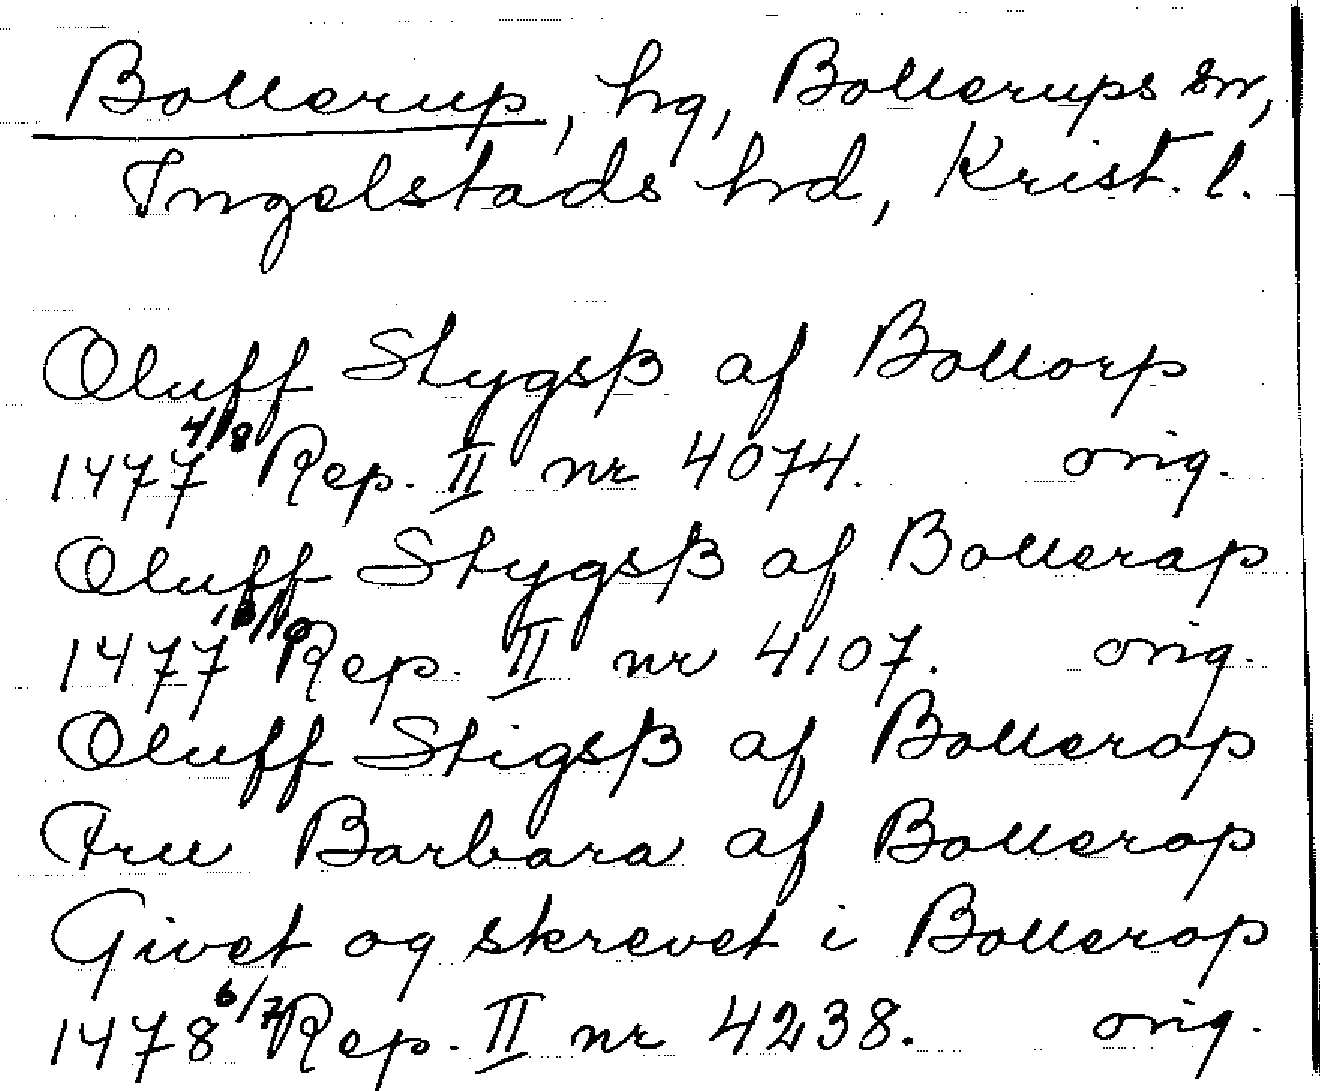 Bollerup, hg, Bollerups sn,
Ingelstads hd, Krist. l.
Oluff Stygsß af Bollorp
1477 4/8 Rep. II nr 4074. orig.
Oluff Stygsß af Bollerap
1477 Rep. II nr 4107. orig.
Oluff Stigsß af Bollerop
Fru Barbara af Bollerop
Givet og skrevet i Bollerop
1478 6/7 Rep. II nr 4238. orig.